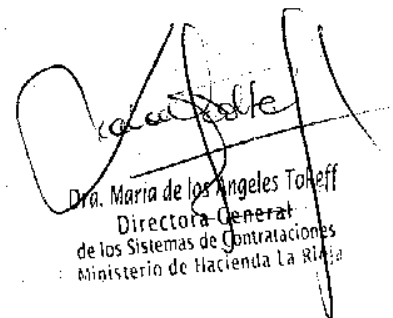 Dra. Maria de los Angeles Tokeff
Directora General
de los Sistemas de Contrataciones
Ministerio de Hacienda La Rioja